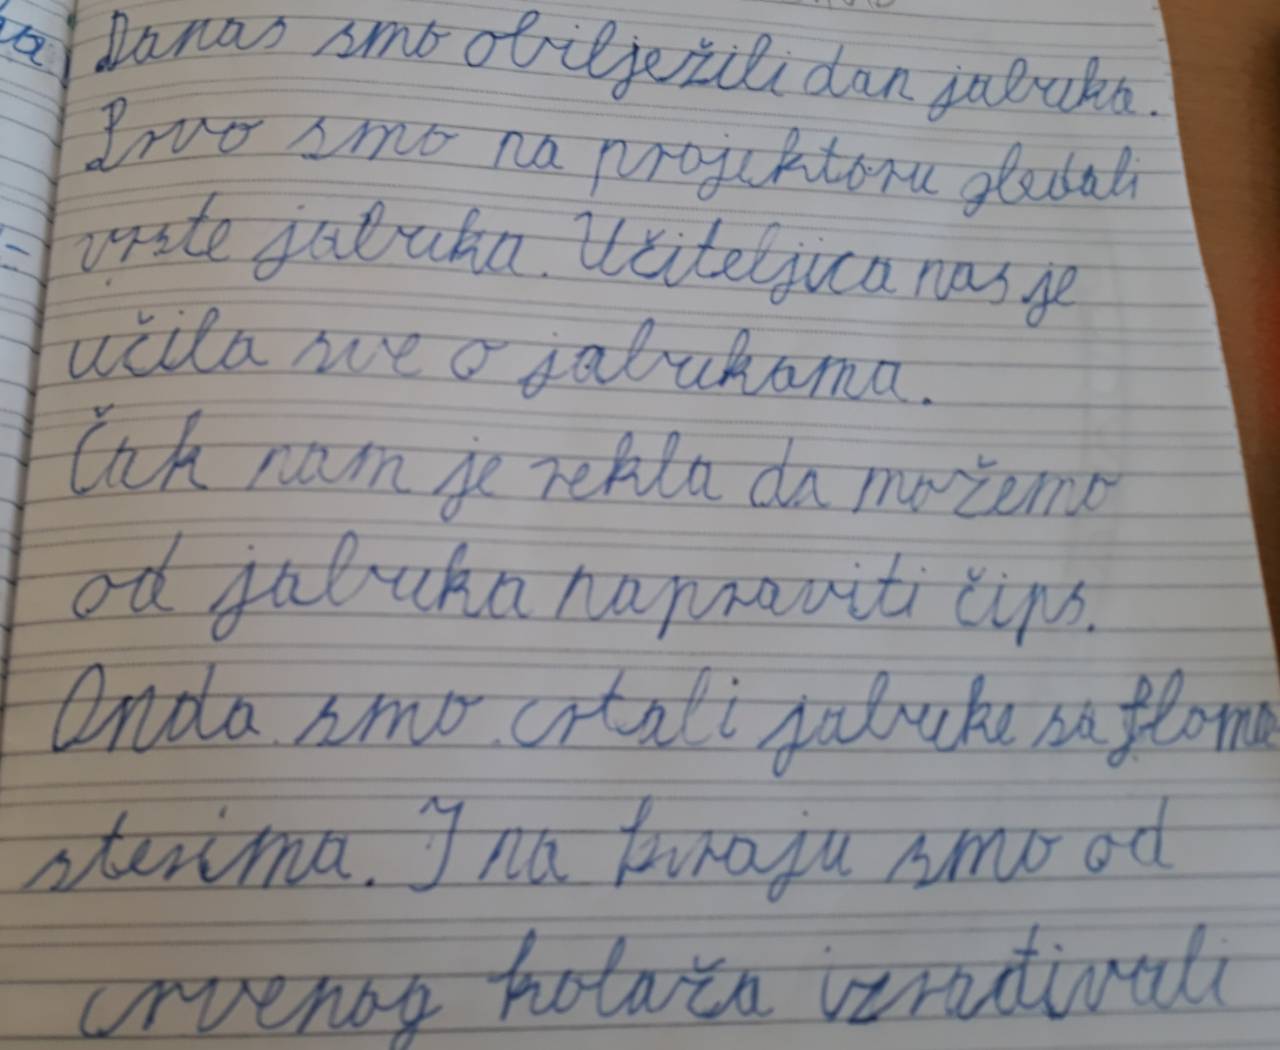 Danas smo obilježili dan jabuka.
Prvo smo na projektoru gledali
vrste jabuka. Učiteljica nas je
učila sve o jabukama.
Čak nam je rekla da možemo
od jabuka napraviti čips.
Onda smo crtali jabuke sa floma
sterima. I na kraju smo od
crvenog kolaža izrađivali